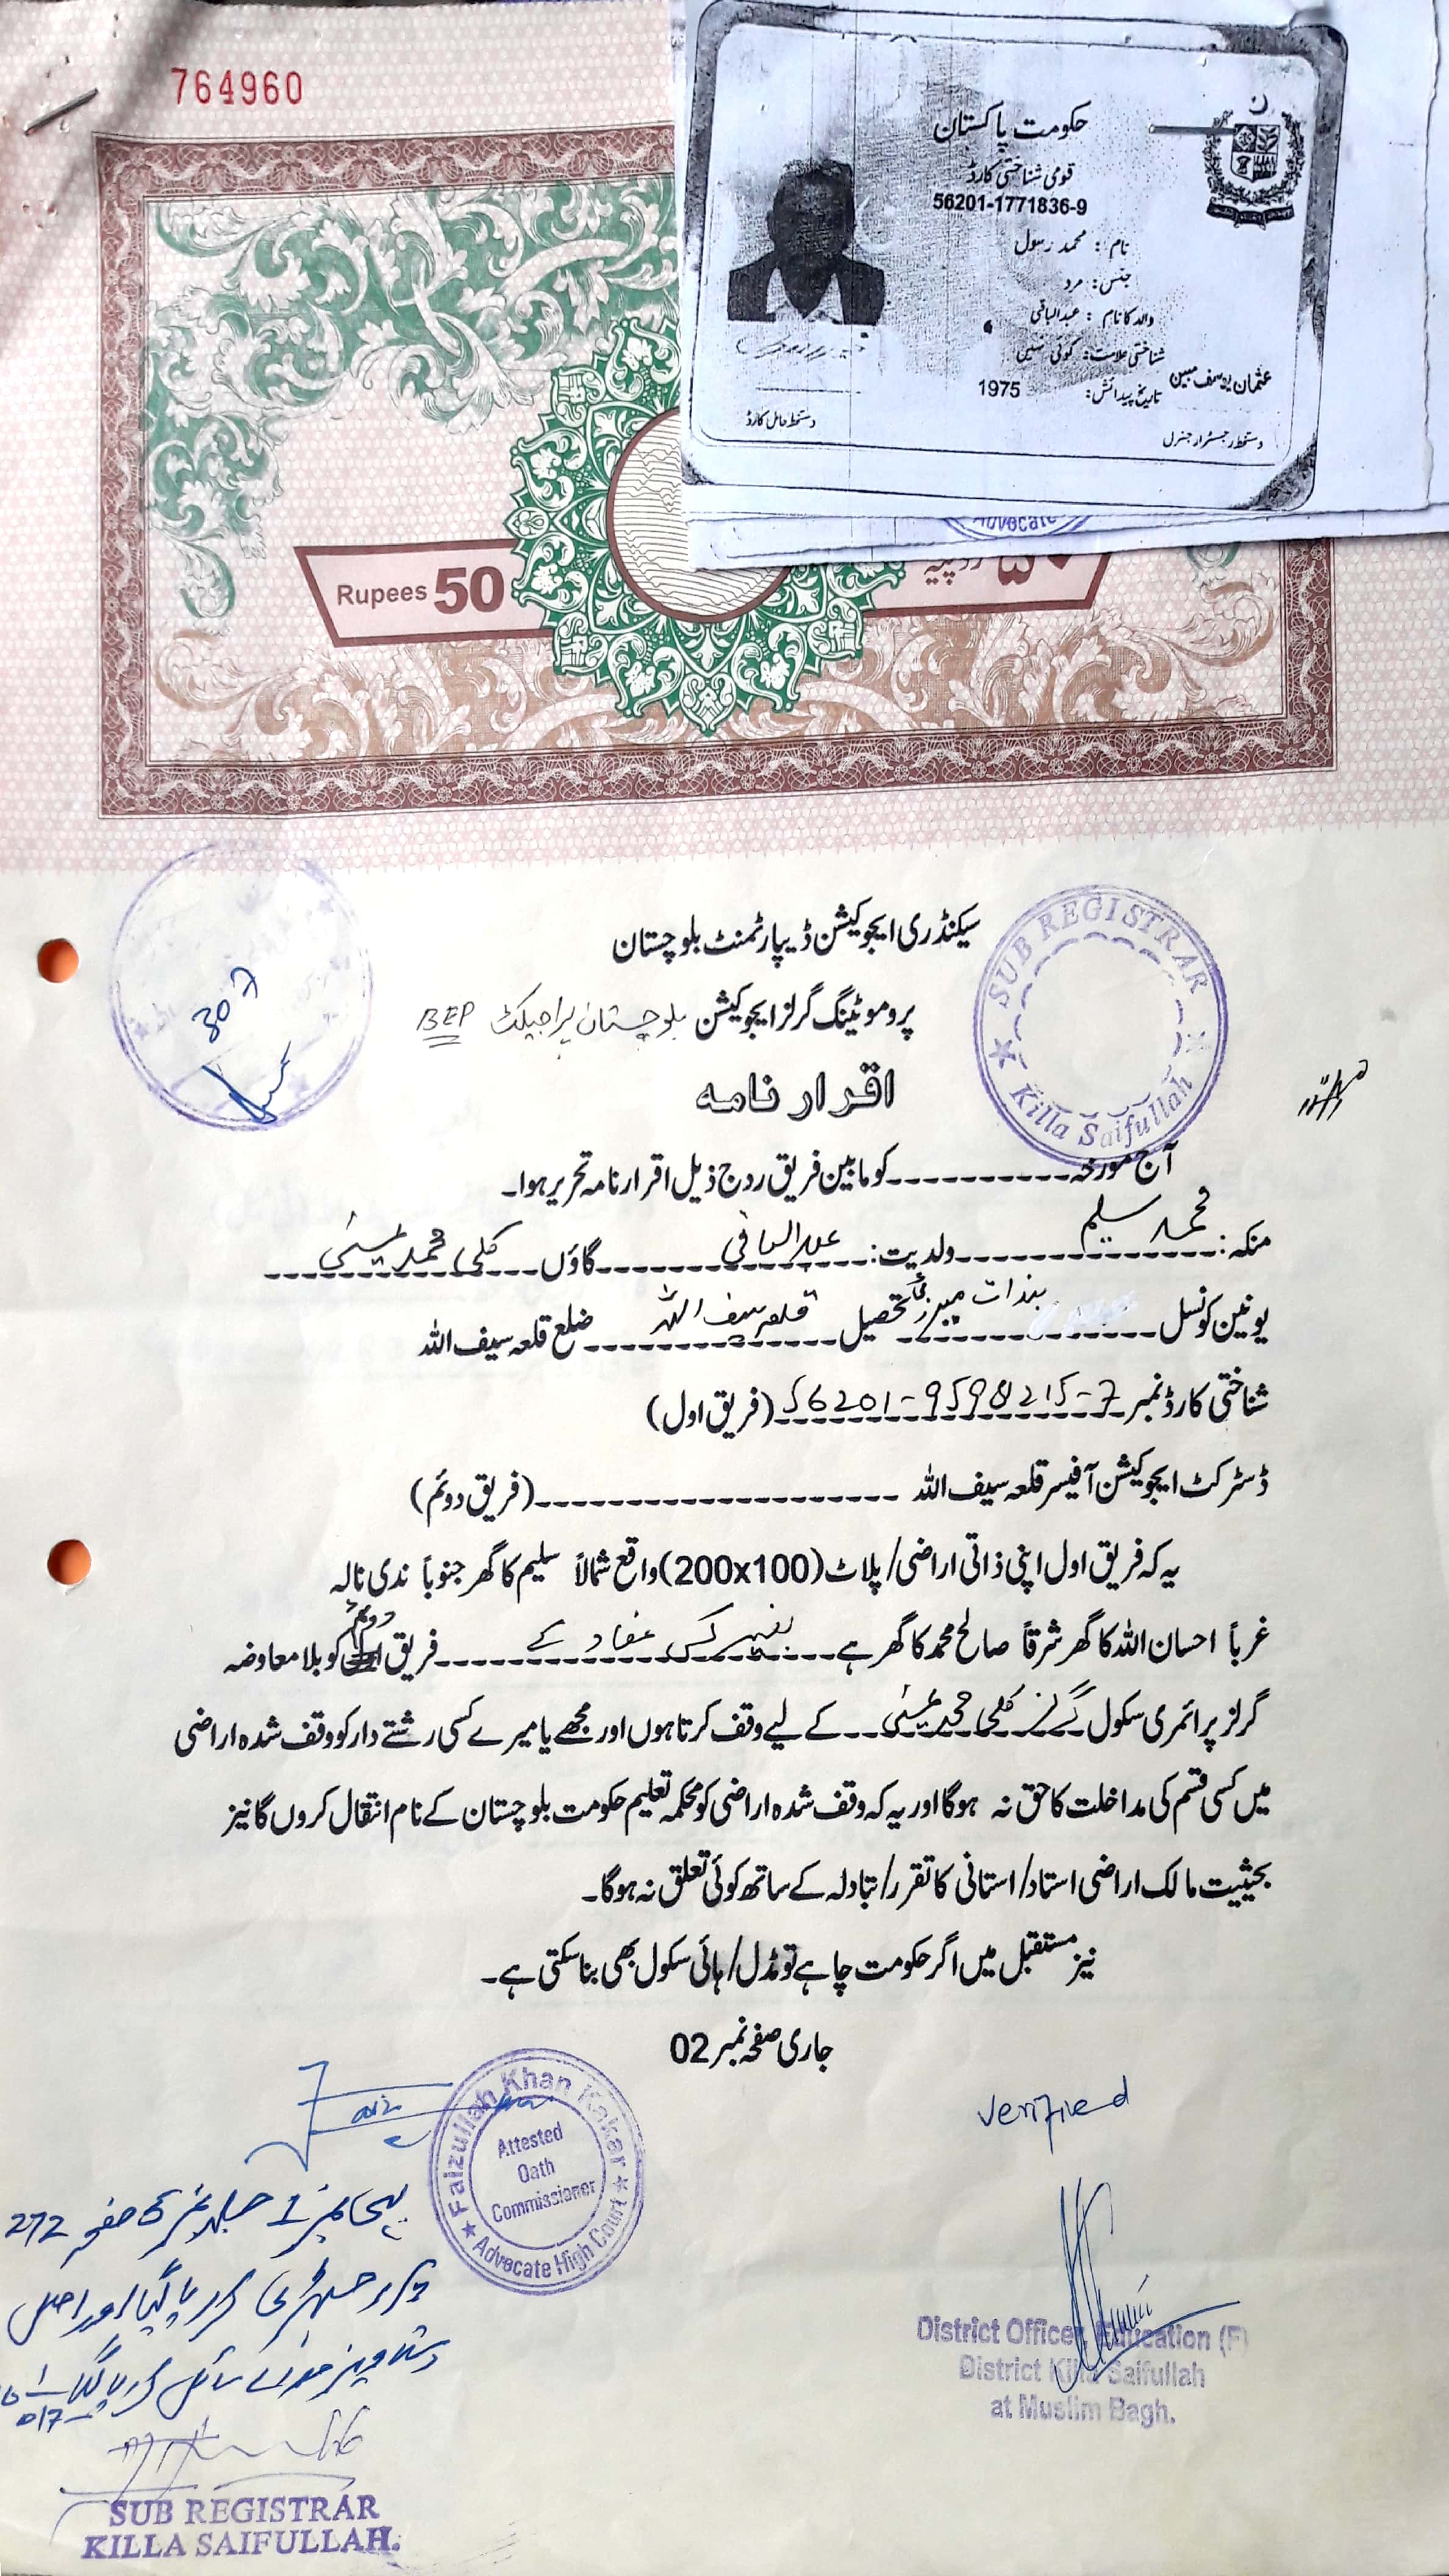 764960
حکومت پاکستان
قومی شناختی کارڈ
56201-1771836-9
نام : محمد رسول
جنس: مرد
والد کا نام : عبدالباقی
شناختی علامت: کوئی نہیں
عثمان یوسف مبین
تاریخ پیدائش: 1975
دستخط حامل کارڈ
دستخط رجسٹرار جنرل
Advocate
Rupees 50
سیکنڈری ایجوکیشن ڈیپارٹمنٹ بلوچستان
پروموٹینگ گرلز ایجوکیشن بلوچستان پراجیکٹ BEP
SUB REGISTRAR
Killa Saifullah
307
اقرار نامہ
آج مورخہ ---------- کو مابین فریق ردج ذیل اقرار نامہ تحریر ہوا۔
منکہ: محمد سلیم ولدیت: عبدالباقی گاؤں کلی محمد عیسٰی
یونین کونسل بندات میرزئی تحصیل قلعہ سیف اللہ ضلع قلعہ سیف اللہ
شناختی کارڈ نمبر 56201-9598215-7 (فریق اول)
ڈسٹرکٹ ایجوکیشن آفیسر قلعہ سیف اللہ -------------------- (فریق دوئم)
یہ کہ فریق اول اپنی ذاتی اراضی/ پلاٹ (200x100) واقع شمالاً سلیم کا گھر جنوباً ندی نالہ
غرباً احسان اللہ کا گھر شرقاً صالح محمد کا گھر ہے بغیر کسی مفاد کے فریق دوئم کو بلا معاوضہ
گرلز پرائمری سکول گرلز کلی محمد عیسٰی کے لیے وقف کرتا ہوں اور مجھے یا میرے کسی رشتے دار کو وقف شدہ اراضی
میں کسی قسم کی مداخلت کا حق نہ ہوگا اور یہ کہ وقف شدہ اراضی کو محکمہ تعلیم حکومت بلوچستان کے نام انتقال کروں گا نیز
بحیثیت مالک اراضی استاد/ استانی کا تقرر/ تبادلہ کے ساتھ کوئی تعلق نہ ہوگا۔
نیز مستقبل میں اگر حکومت چاہے تو مڈل/ ہائی سکول بھی بنا سکتی ہے۔
جاری صفحہ نمبر 02
Faizullah Khan Kakar
Attested
Oath
Commissioner
Advocate High Court
verified
نمبر 1 جلد نمبر 5 صفحہ 272
پر رجسٹری کر دیا گیا اور اصل
دستاویز
District Officer Education (F)
District Killa Saifullah
at Muslim Bagh.
SUB REGISTRAR
KILLA SAIFULLAH.